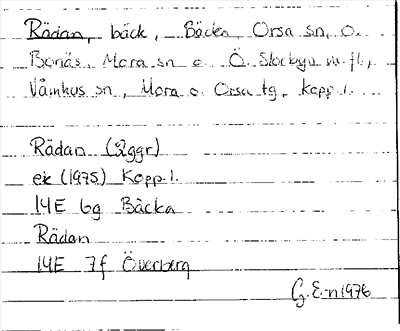 Rädan, bäck, Bäcka, Orsa sn, o.
Bonäs, Mora sn o. Ö. Storbyn m.fl.,
Våmhus sn, Mora o. Orsa tg, Kopp. l.
Rädan (2ggr)
ek (1975) Kopp. l.
14E 6g Bäcka
Rädan
14E 7f Överberg
G. E-n 1976